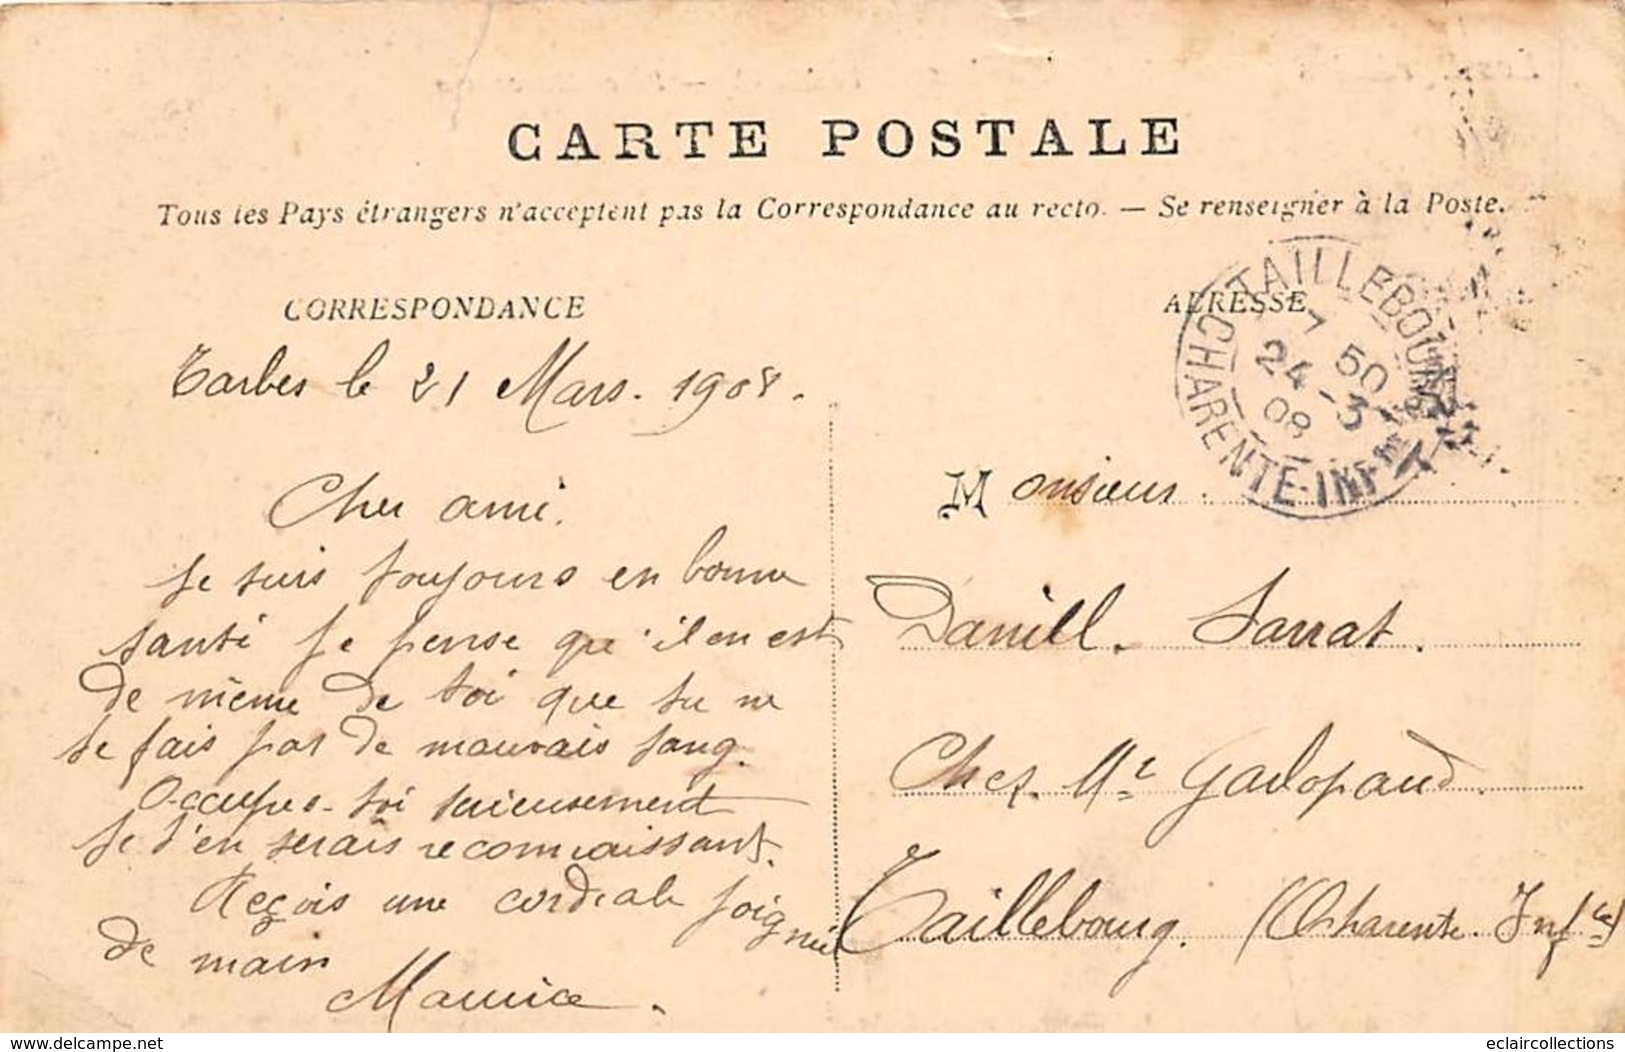 CARTE POSTALE
Tous les Pays étrangers n'acceptent pas la Correspondance au recto. — Se renseigner à la Poste.
CORRESPONDANCE
Tarbes le 21 Mars. 1908.
Cher ami.
Je suis toujours en bonne
santé je pense qu'il en est
de même de toi que tu ne
te fais pas de mauvais sang.
Occupes-toi serieusement
je t'en serais reconnaissant.
Reçois une cordiale poignée
de main
Maurice.
ADRESSE
TAILLEBOURG
7 50
24 -3
08
CHARENTE-INFRE
Monsieur.
Daniell. Sarrat.
Chez. Mr Gadopaud.
Taillebourg. (Charente. Infre)
www.delcampe.net
eclaircollections